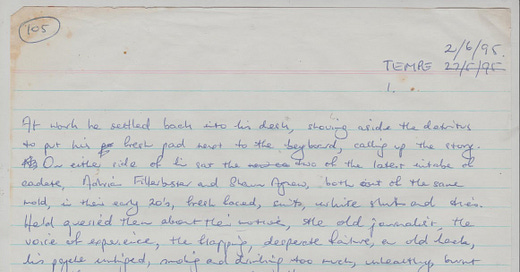 105
2/6/95.
TEMPE 27/5/95
1.
At work he settled back into his desk, shoving aside the detritus
to put his fresh pad next to the keyboard, calling up the story.
On either side of him sat the two of the latest intake of
cadets, Adrian Fillerbuster and Shaun Agnew, both out of the same
mold, in their early 20's, fresh faced, suits, white shirts and ties.
He'd queried them about their motives, the old journalist, the
voice of experience, the flapping, desperate failure, an old hack,
his people untiped, smoking and drinking too much, unhealthy, burnt